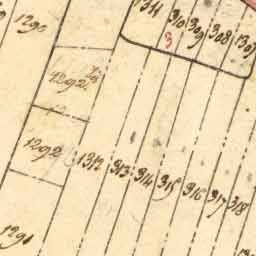 1290
1311
310
309
308
1307
3
1292
1292
1312
313
314
315
316
317
318
1291